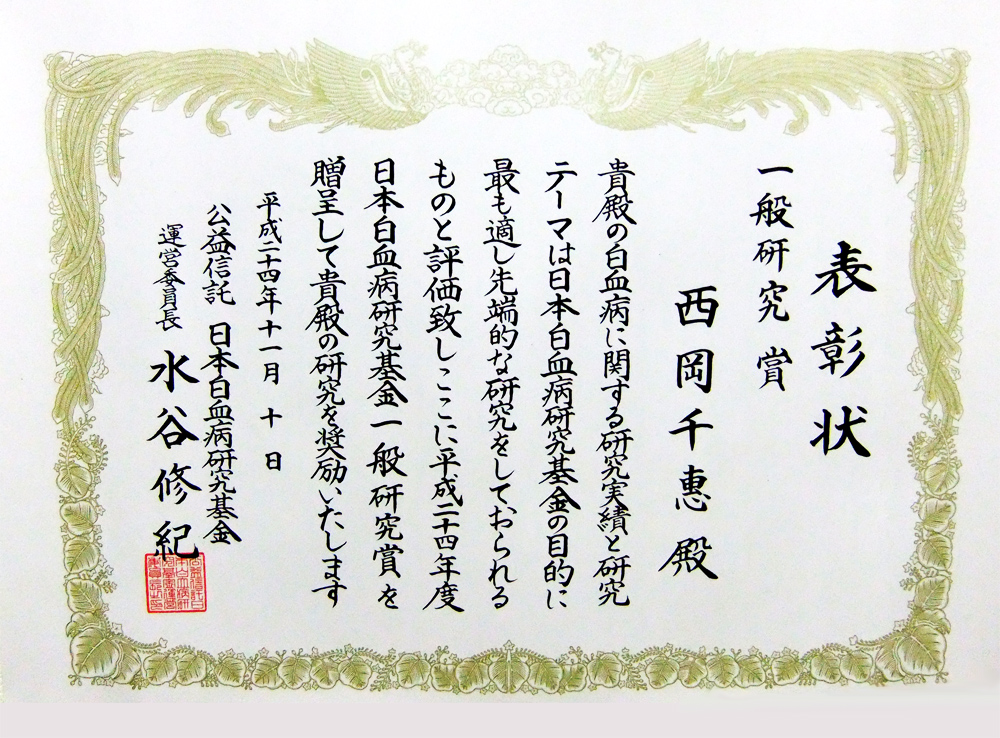 表彰状
一般研究賞
西岡千惠殿
貴殿の白血病に関する研究実績と研究
テーマは日本白血病研究基金の目的に
最も適し先端的な研究をしておられる
ものと評価致しここに平成二十四年度
日本白血病研究基金一般研究賞を
贈呈して貴殿の研究を奨励いたします
平成二十四年十一月十日
公益信託 日本白血病研究基金
運営委員長 水谷修紀